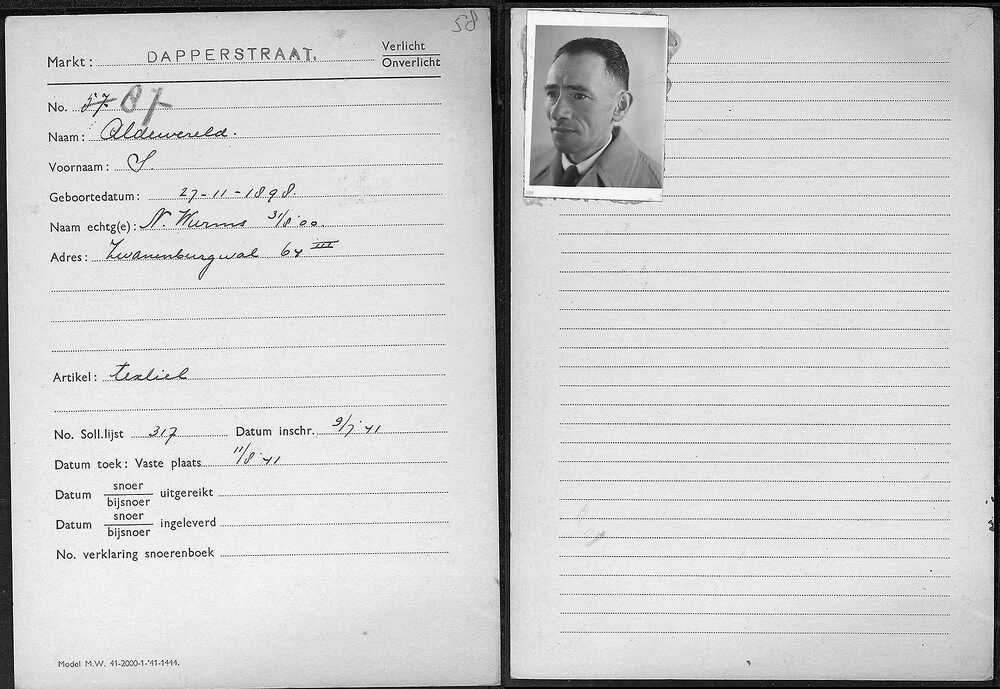 58
Markt: DAPPERSTRAAT. Verlicht
Onverlicht
No. 57 87
Naam: Aldewereld.
Voornaam: S.
Geboortedatum: 27-11-1898.
Naam echtg(e): N. Wurms 31/8'00.
Adres: Zwanenburgwal 64 III
Artikel: textiel
No. Soll.lijst 317 Datum inschr. 9/7'41
Datum toek: Vaste plaats 11/8'41
Datum snoer
bijsnoer uitgereikt
Datum snoer
bijsnoer ingeleverd
No. verklaring snoerenboek
Model M.W. 41-2000-1-'41-1444.